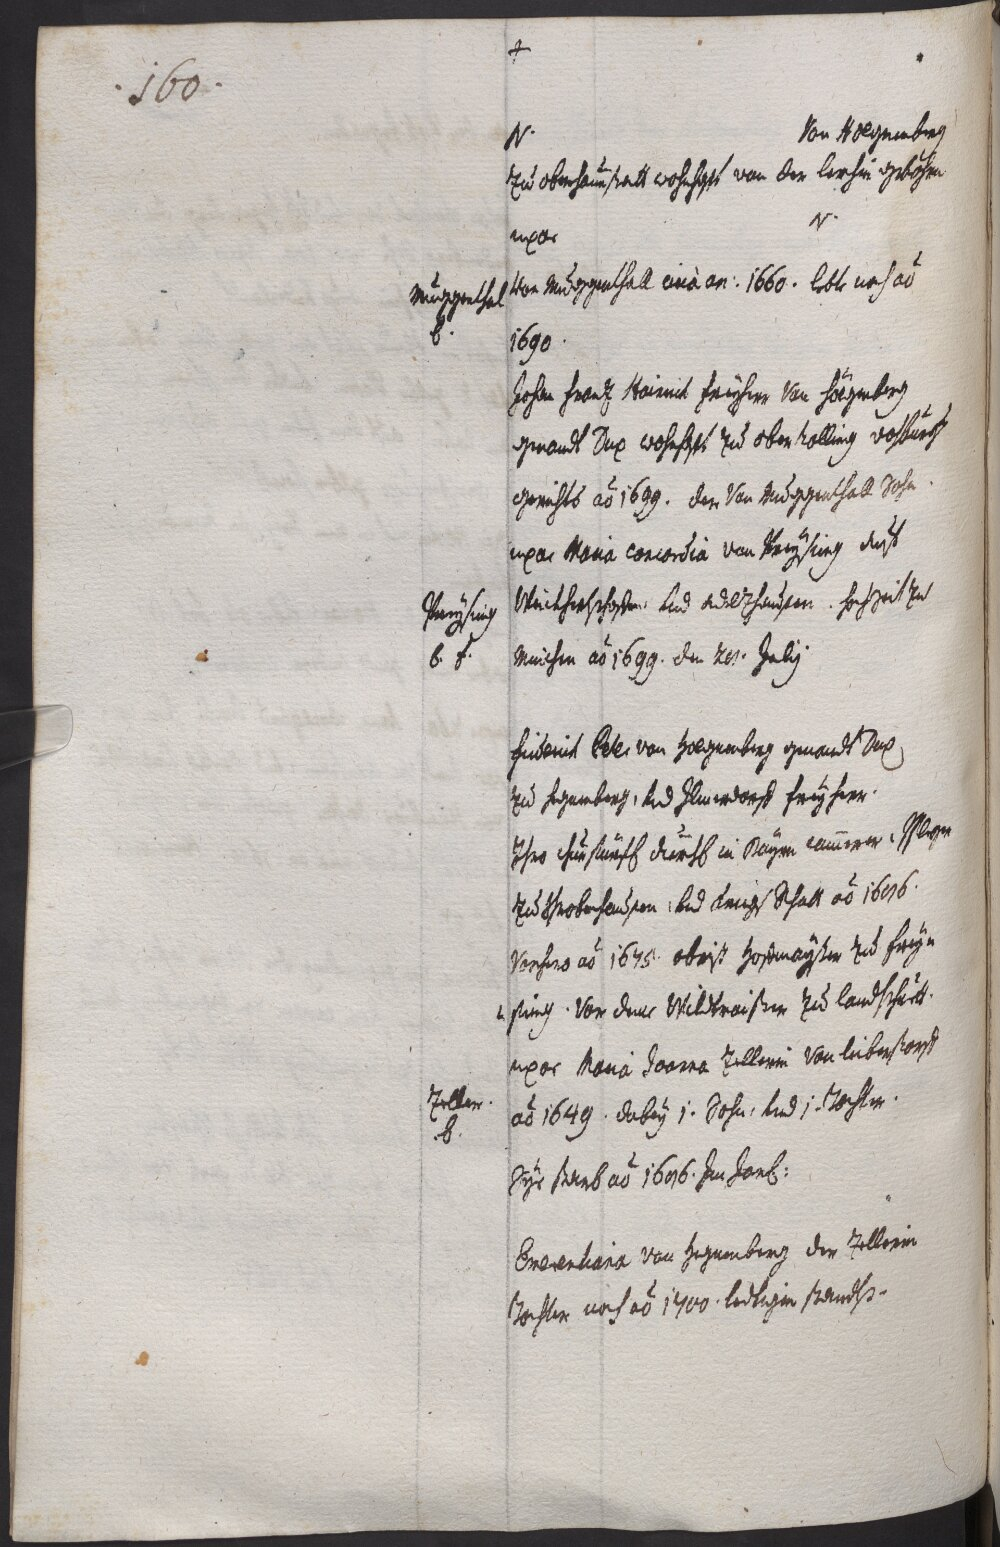 160.
+
N. Von Hegnenberg
zu oberhaunstatt wohnhafft von der lerchin gebohrn
uxor N.
Muggenthal
b.
Von Muggenthall circa an: 1660. lebte noch aō
1690.
Johan Frantz Heinrich Freyherr Von Hegnenberg
genandt Dux wohnhafft zu oberholling vohburg
gerichts aō 1699. der Von Muggenthall Sohn.
uxor Maria Concordia von Preysing auf
Preysing
b. f.
und Adelzhausen. hochzeit zu
München aō 1699. den 20. July.
Friderich Peter von Hegnenberg genandt Dux
zu Hegnenberg, und Freyherr.
Ihro churfürstl. durchl. in Bayrn cammerer, Pfleger
zu Schrobenhausen, und kriegs Rhatt aō 1696.
Vorhero aō 1675. obrist hofmayster zu Freys-
sing. Vor deme Wildtmaister zu landtshuett.
uxor Maria Joanna Zellerin Von leibersdorff
Zeller.
b.
aō 1649. dabey 1. Sohn, und 1. Tochter.
Sye starb aō 1696. Im
Crescentiana von Hegnenberg der Zellerin
Tochter noch aō 1700. ledtigen standts.